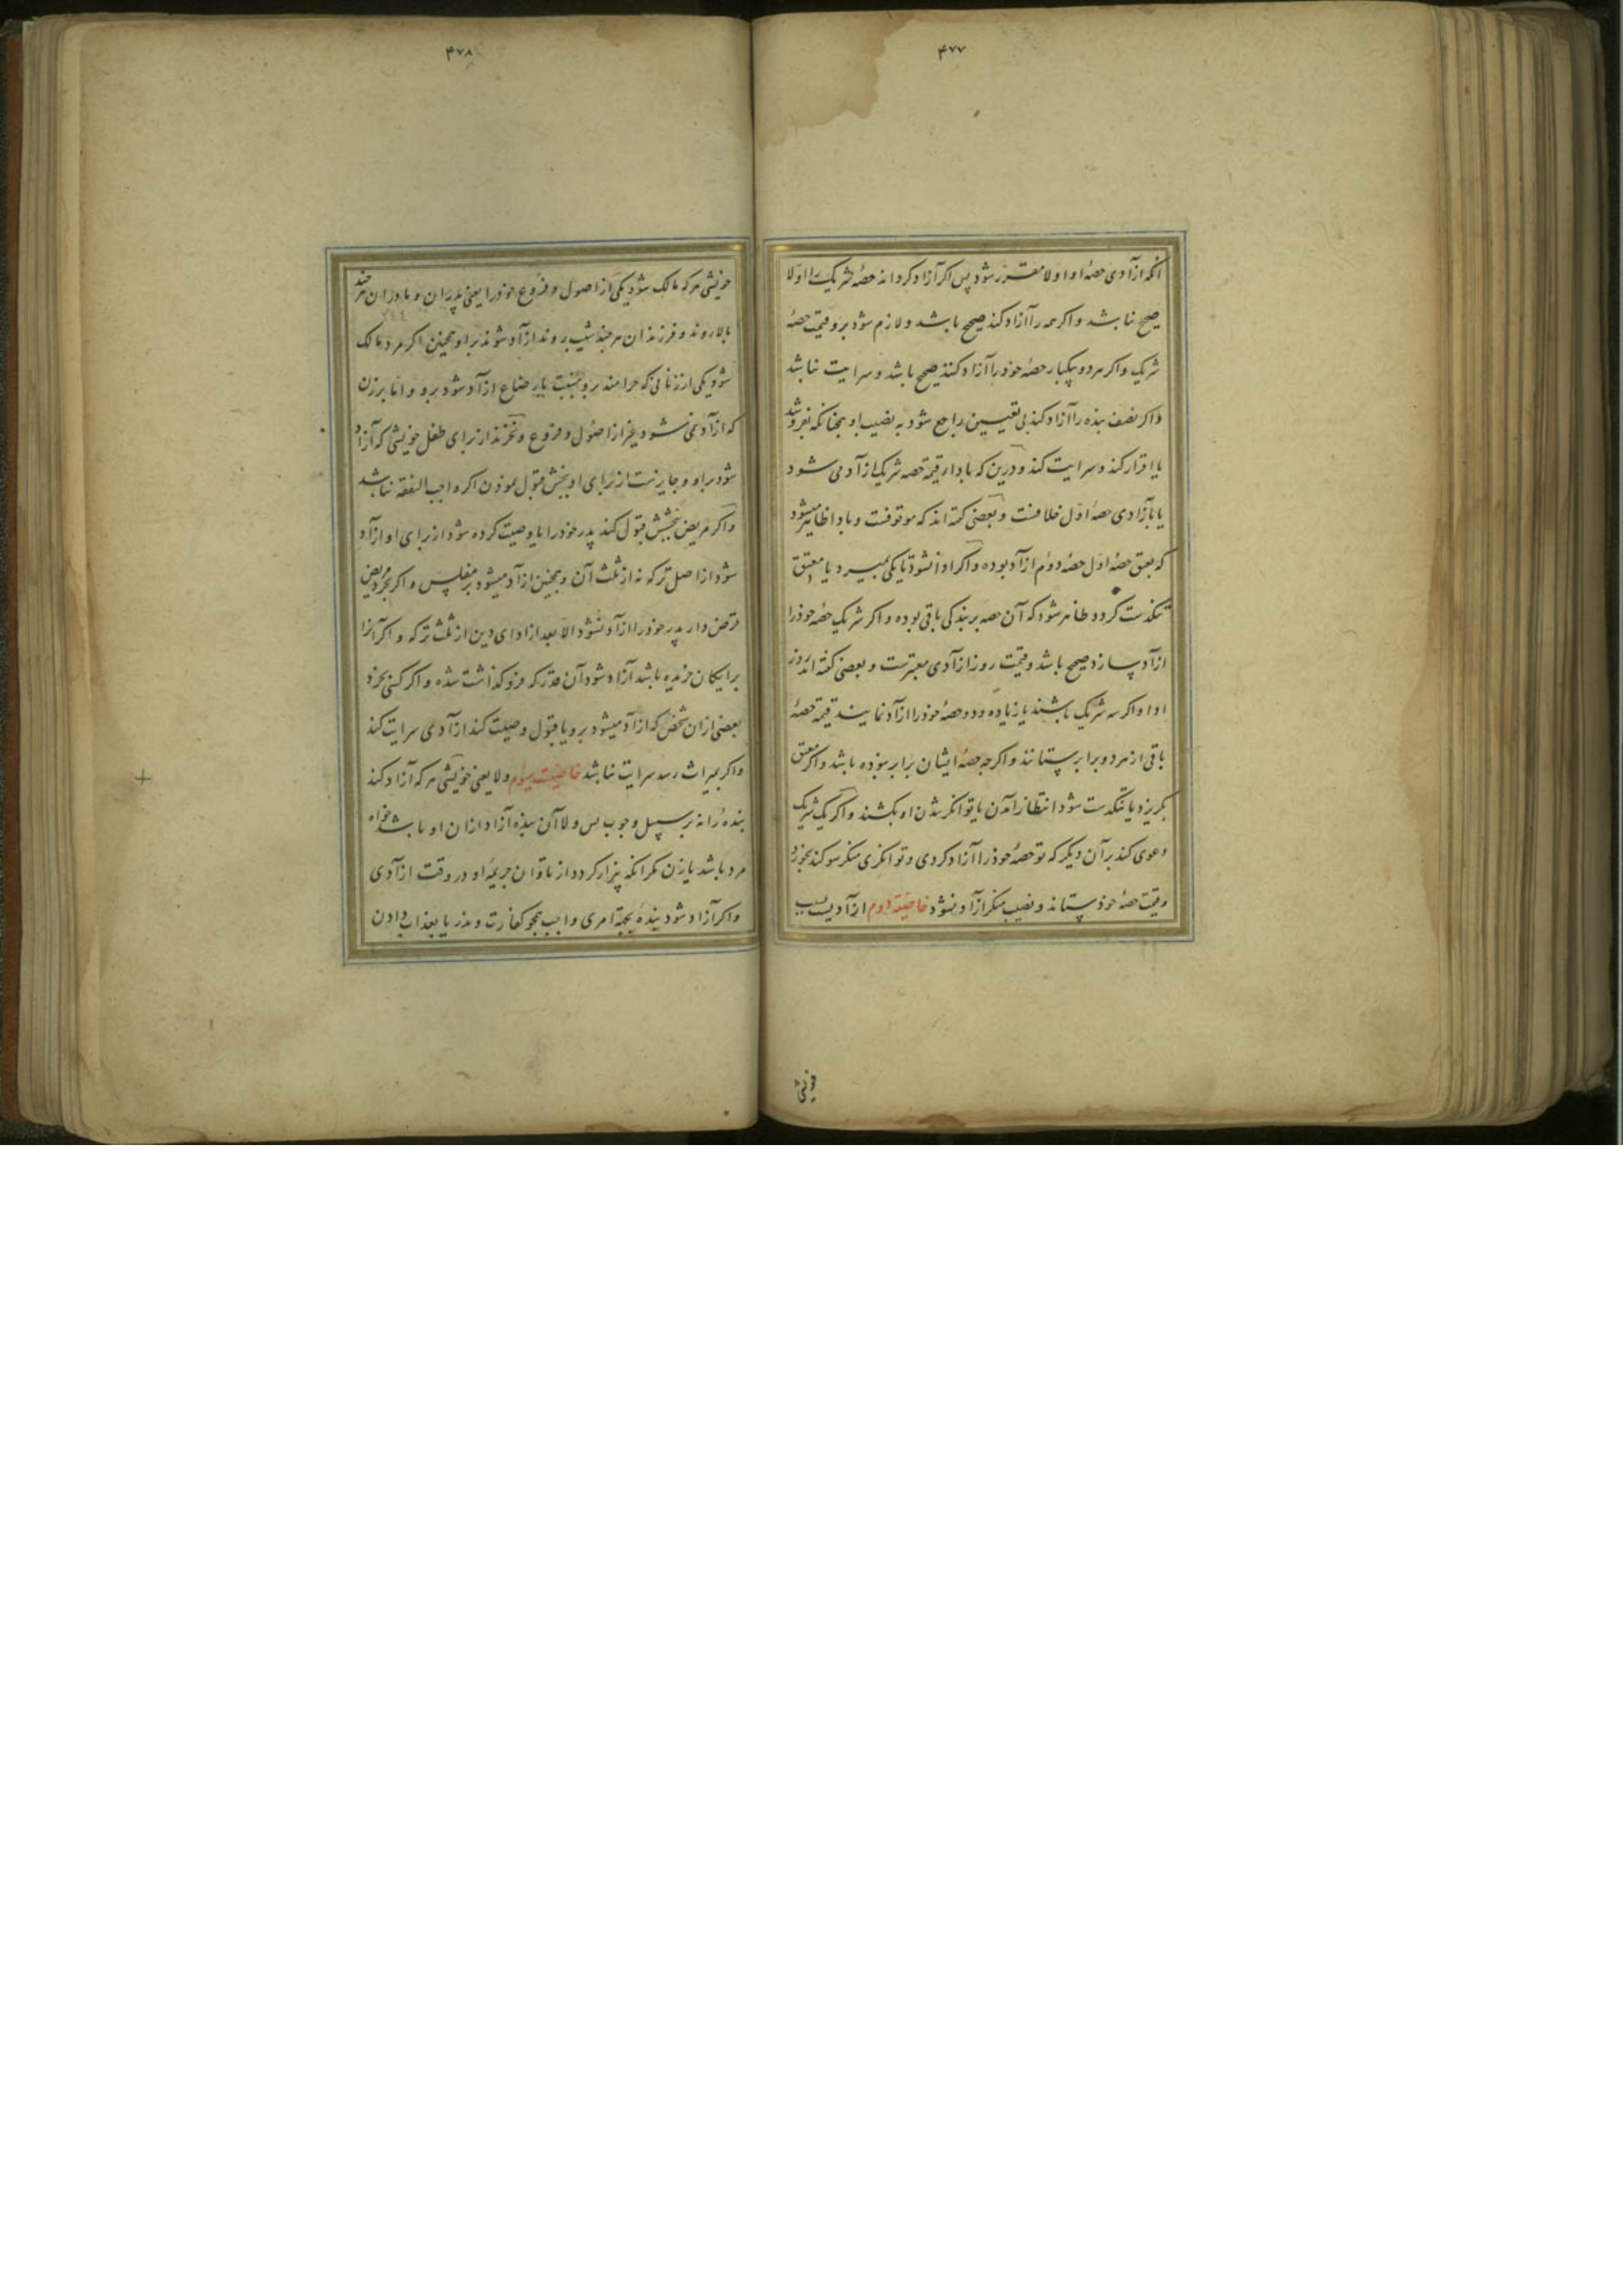 ۴۷۷
انکه ازآدی حصهٔ او اولا مقرر شود پس اکر آزاد کرداند حصهٔ شریک را اوّلا
صحیح نباشد و اکر همه را آزاد کند صحیح باشد و لازم شود برو قیمت حصهٔ
شریک و اکر هر دو بیکبار حصهٔ خوذ را آزاد کنند صحیح باشد و سرایت نباشد
و اکر نصف بنده را آزاد کند بی تعیین راجع شود به نصیب او همچنانکه بفروشد
یا اقرار کند و سرایت کند و درین که بادا قیمة حصه شریک ازآد می شود
یا بآزادی حصهٔ اوّل خلافست و بعضی کفته اند که موقوفست و بادا ظاهر میشود
که بعتق حصهٔ اول حصهٔ دوم ازآد بوده و اکر ادا نشود تا یکی بمیرد یا معتق
تنکدست کردد ظاهر شود که آن حصه بر بندکی باقی بوده و اکر شریک حصهٔ خوذ را
ازآد سازد صحیح باشد و قیمت روز ازآدی معتبرست و بعضی کفته اند روز
ادا و اکر سه شریک باشند یا زیاده و دو حصهٔ خوذ را ازآد نمایند قیمة حصهٔ
باقی از هر دو برابر بستانند و اکرچه حصهٔ ایشان برابر نبوذه باشد و اکر معتق
بکریزد یا تنکدست شود انتظار آمدن یا توانکر شدن او بکشند و اکر یک شریک
دعوی کند بر آن دیکر که تو حصهٔ خوذ را آزاد کردی و توانکری منکر سوکند بخورد
و قیمت حصهٔ خوذ بستاند و نصیب منکر ازآد نشود خاصیّة دوم ازآد بسبب
خویشی
۴۷۸
خویشی هر که مالک شود یکی از اصول و فروع خوذ را یعنی پدران و مادران هرچند
بالا روند و فرزندان هرچند شیب روند ازآد شوند بر او همچنین اکر مرد مالک
شود یکی از زنانی که حرامند برو بنسبت یا رضاع ازآد شود برو و اما بر زن
که ازآد نمی شود غیر از اصول و فروع و نخرند از برای طفل خویشی که آزاد
شود بر او و جایزست از برای او بخشش قبول نموذن اکر واجب النفقه نباشد
و اکر مریض بخشش قبول کند پدر خوذ را یا وصیت کرده شود از برای او ازآد
شود از اصل ترکه نه از ثلث آن و همچنین ازآد میشود بر مفلس و اکر بخرد مریض
قرض دار پدر خوذ را ازآد نشود الا بعد از ادای دین از ثلث ترکه و اکر آنرا
برایکان خریده باشد آزاد شود آن قدر که فرو کذاشت شده و اکر کسی بخرد
بعضی از ان شخص که ازآد میشود برو یا قبول وصیت کند ازآدی سرایت کند
و اکر بمیراث رسد سرایت نباشد خاصیّت سیوم ولا یعنی خویشی هر که آزاد کند
بنده را نه بر سبیل وجوب پس ولا آن بنده آزاد از ان او باشد خواه
مرد باشد یا زن مکر انکه بیزار کردد از تاوان جریمهٔ او در وقت ازآدی
و اکر آزاد شود بندهٔ بجهة امری واجب همجو کفارت و نذر یا بعذاب دادن